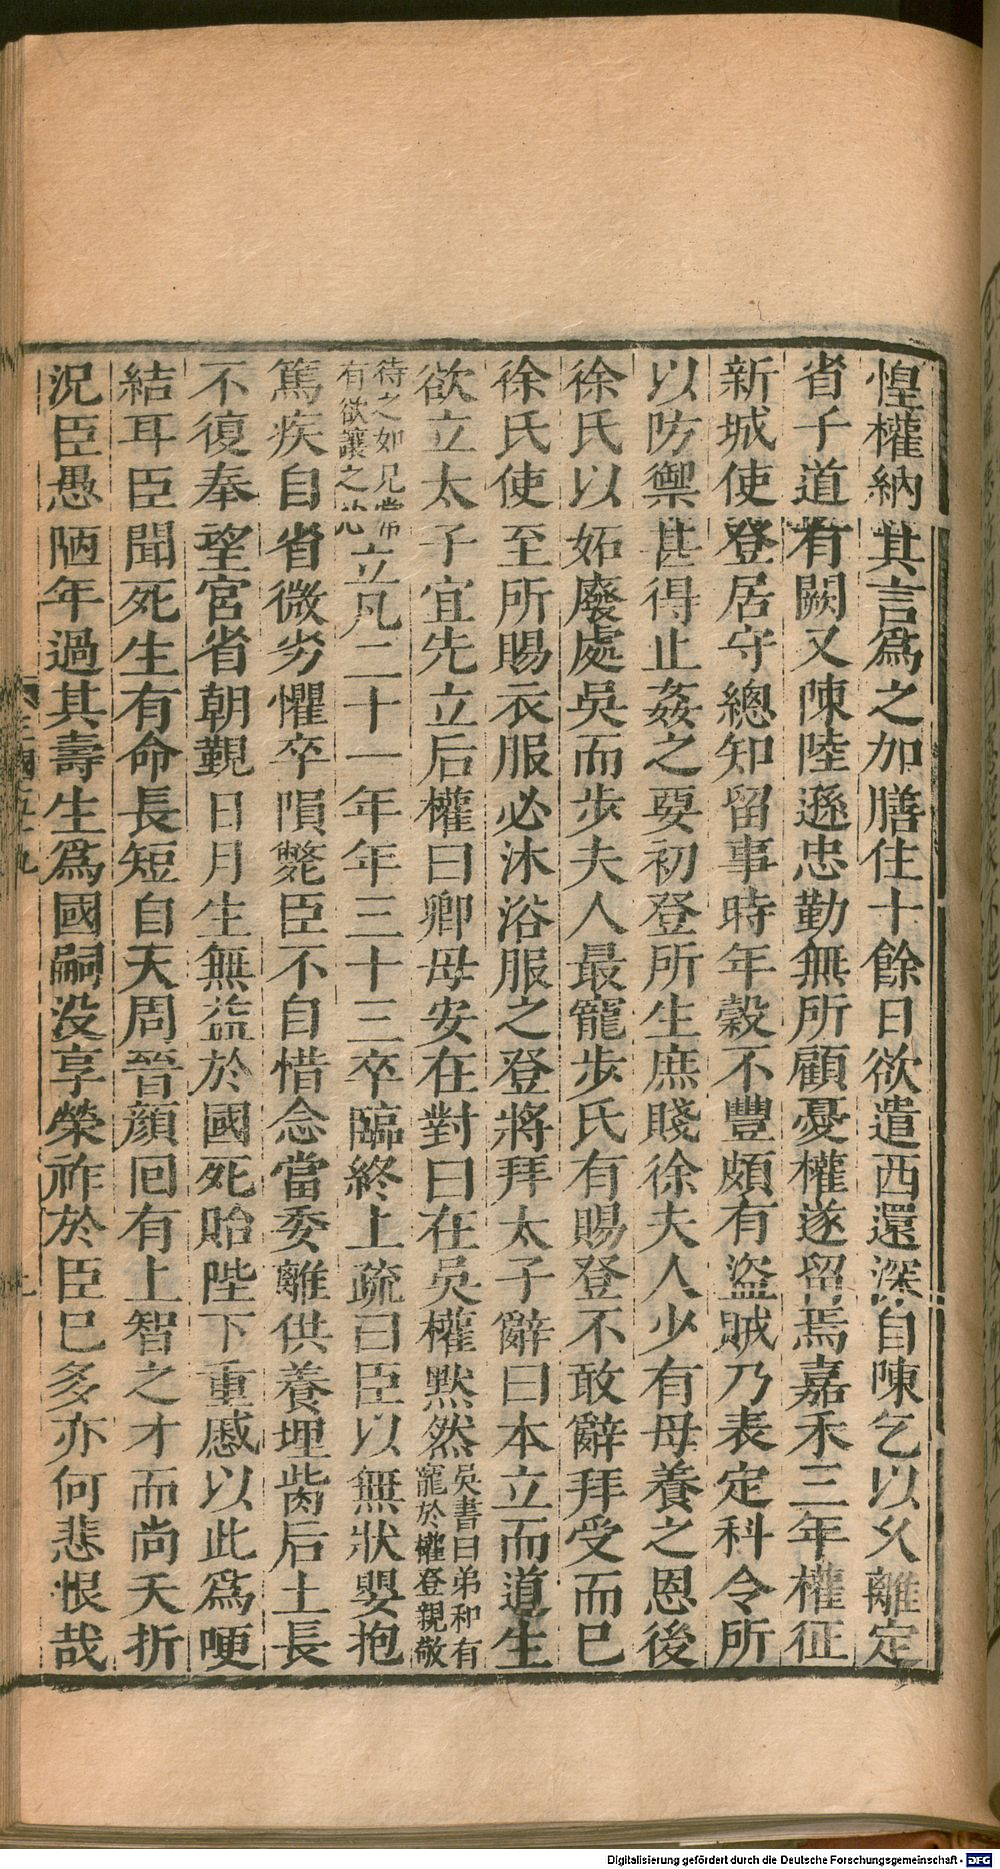 惶權納其言爲之加膳住十餘日欲遣西還深自陳乞以久離定
省子道有闕又陳陸遜忠勤無所顧憂權遂留焉嘉禾三年權征
新城使登居守總知留事時年穀不豐頗有盜賊乃表定科令所
以防禦甚得止姦之要初登所生庶賤徐夫人少有母養之恩後
徐氏以妬廢處吳而步夫人最寵步氏有賜登不敢辭拜受而已
徐氏使至所賜衣服必沐浴服之登將拜太子辭曰本立而道生
欲立太子宜先立后權曰卿母安在對曰在吳權默然吳書曰弟和有寵於權登親敬
待之如兄常有欲讓之心立凡二十一年年三十三卒臨終上疏曰臣以無狀嬰抱
篤疾自省微劣懼卒隕斃臣不自惜念當委離供養埋胔后土長
不復奉望宮省朝覲日月生無益於國死貽陛下重慼以此爲哽
結耳臣聞死生有命長短自天周晉顏回有上智之才而尚夭折
況臣愚陋年過其壽生爲國嗣没享榮祚於臣已多亦何悲恨哉
Digitalisierung gefördert durch die Deutsche Forschungsgemeinschaft - DFG